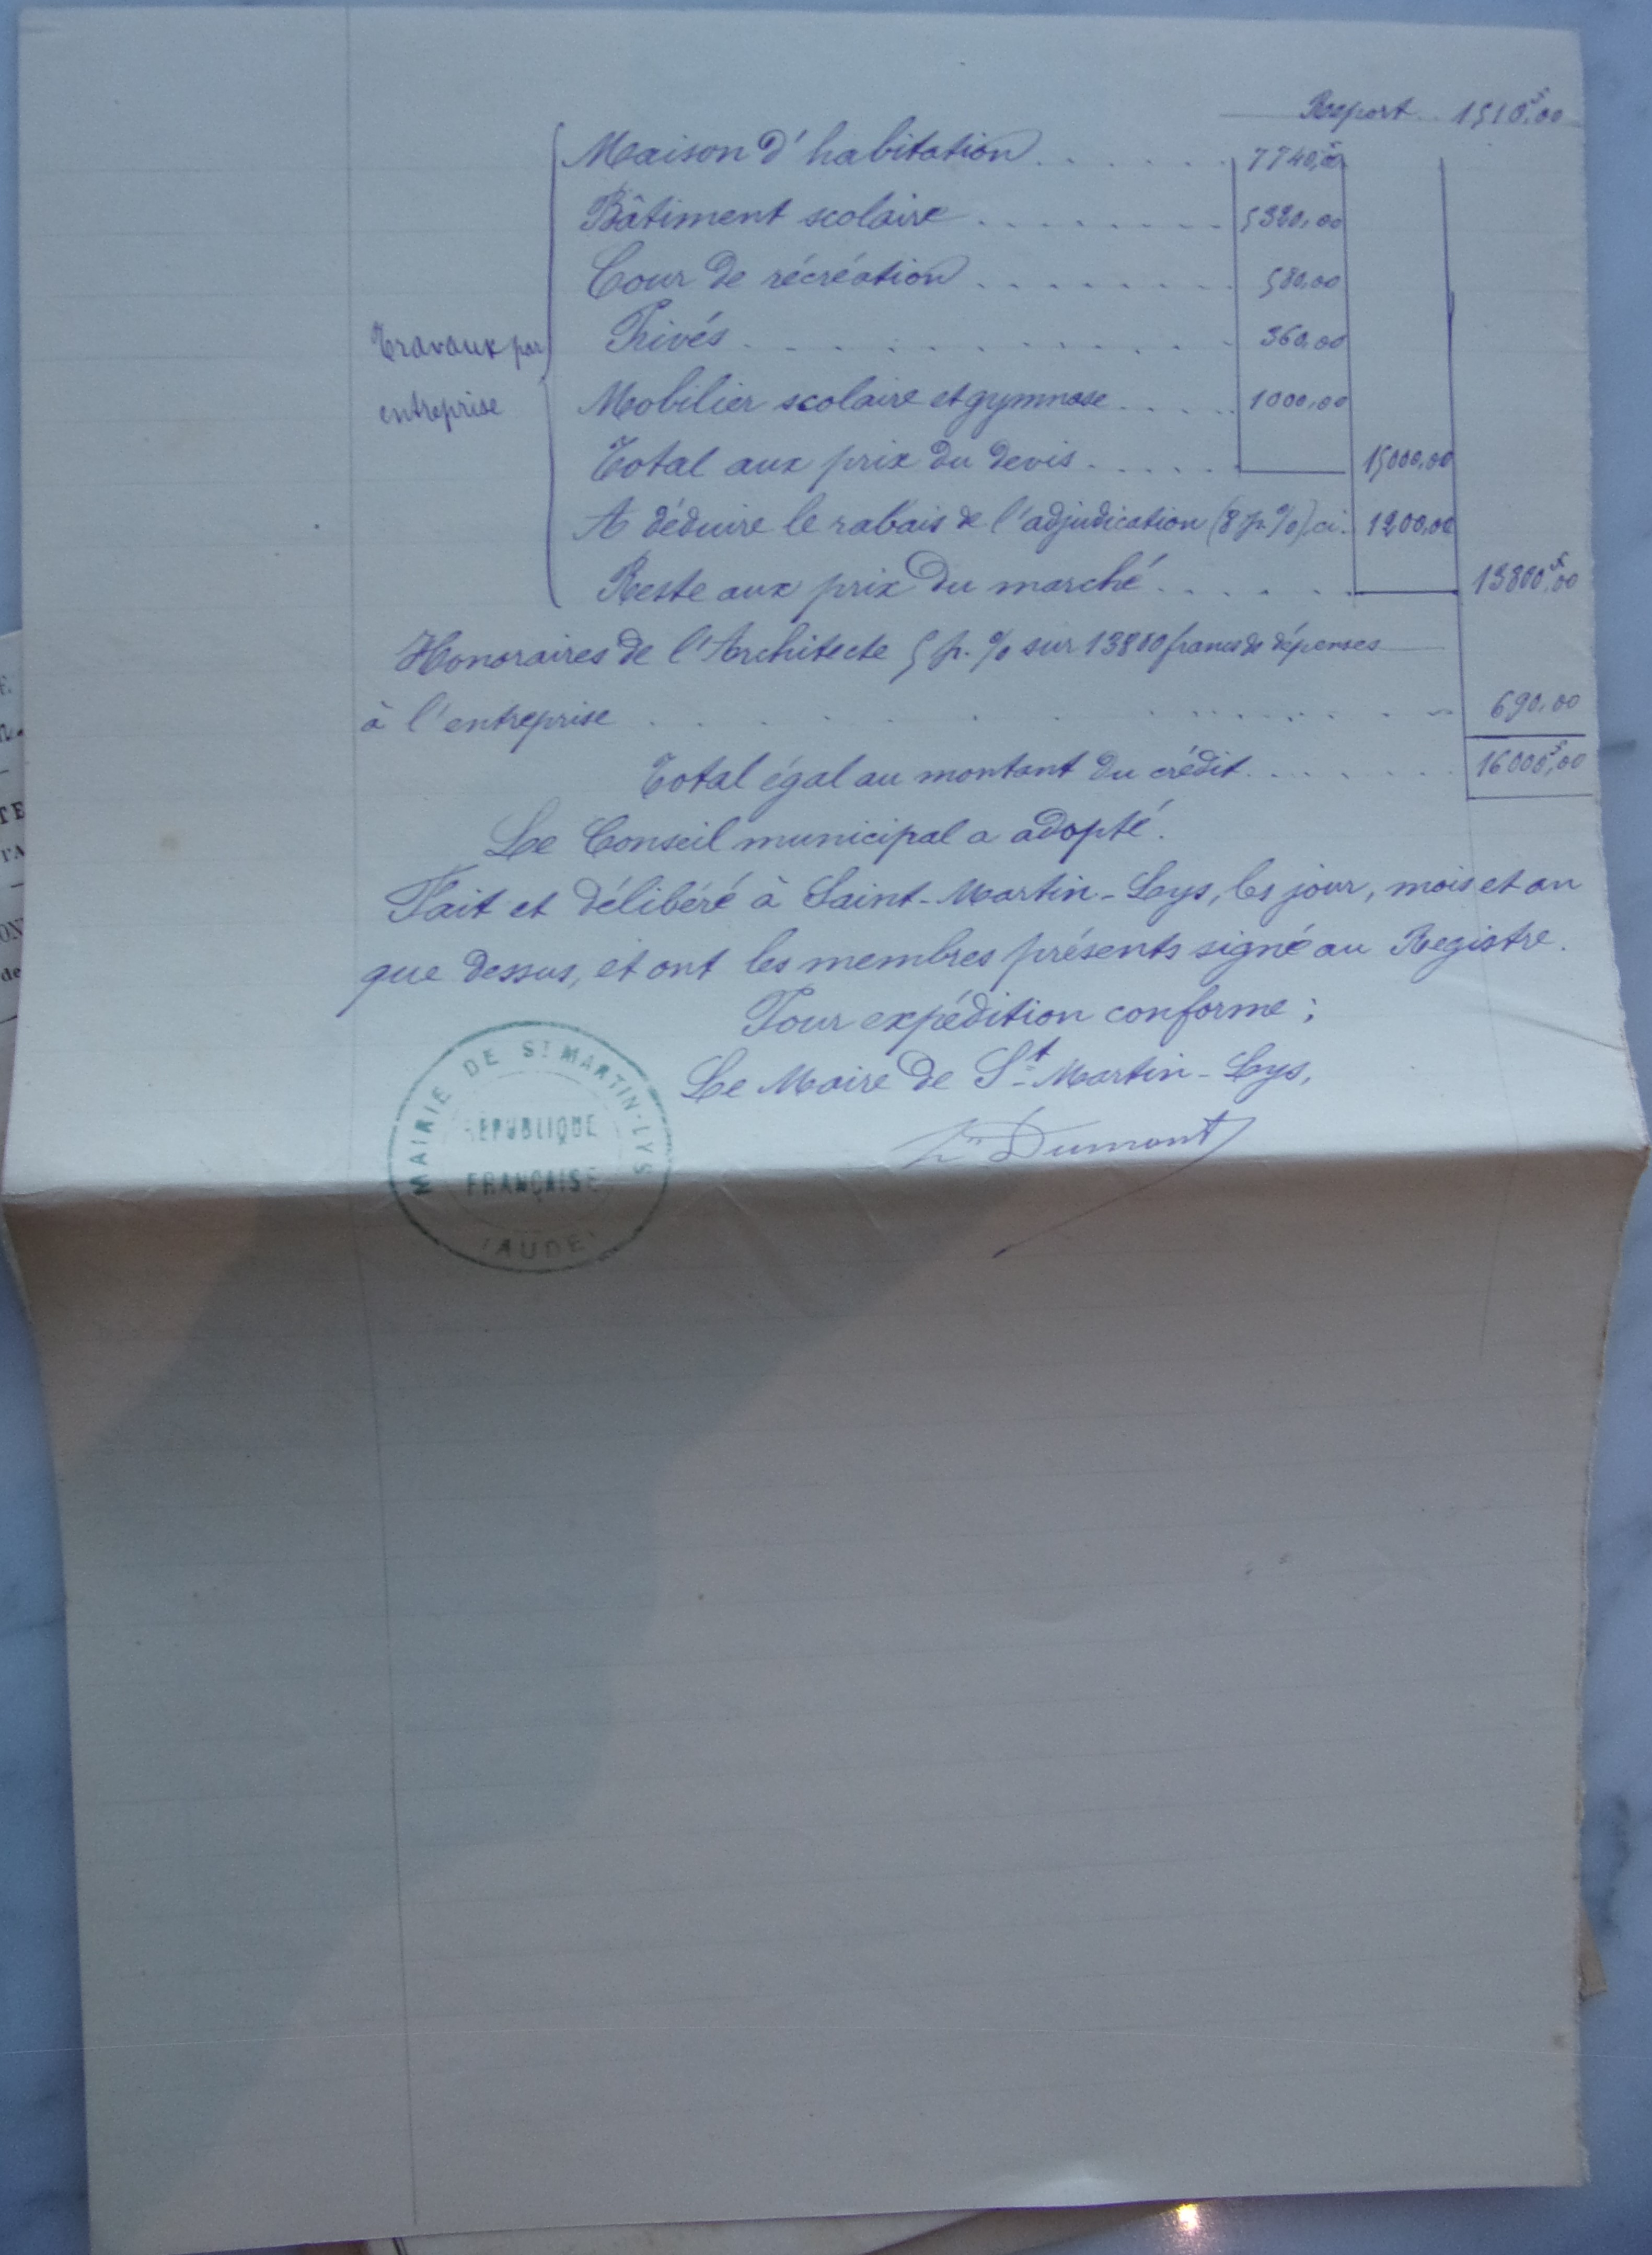 Report .. 1510f,00
Maison d'habitation . . . . . . 7740,00
Bâtiment scolaire . . . . . . . . 5320,00
Cour de récréation . . . . . . . . 580,00
Travaux par
entreprise
Privés . . . . . . . . . . . . . 360,00
Mobilier scolaire et gymnase . . . . . 1000,00
Total aux prix du devis . . . . . . 15000,00
A déduire le rabais de l'adjudication (8 p. %), ci. 1200,00
Reste aux prix du marché . . . . . . 13800f,00
Honoraires de l'Architecte 5 p. % sur 13800 francs de dépenses
à l'entreprise . . . . . . . . . . . . . 690,00
Total égal au montant du crédit . . . . . . . . 16000f,00
Le Conseil municipal a adopté.
Fait et délibéré à Saint-Martin-Lys, les jour, mois et an
que dessus, et ont les membres présents signé au Registre.
Pour expédition conforme ;
Le Maire de St Martin-Lys,
Dumont
MAIRIE DE ST MARTIN-LYS
RÉPUBLIQUE
FRANÇAISE
(AUDE)
TE
ON
de